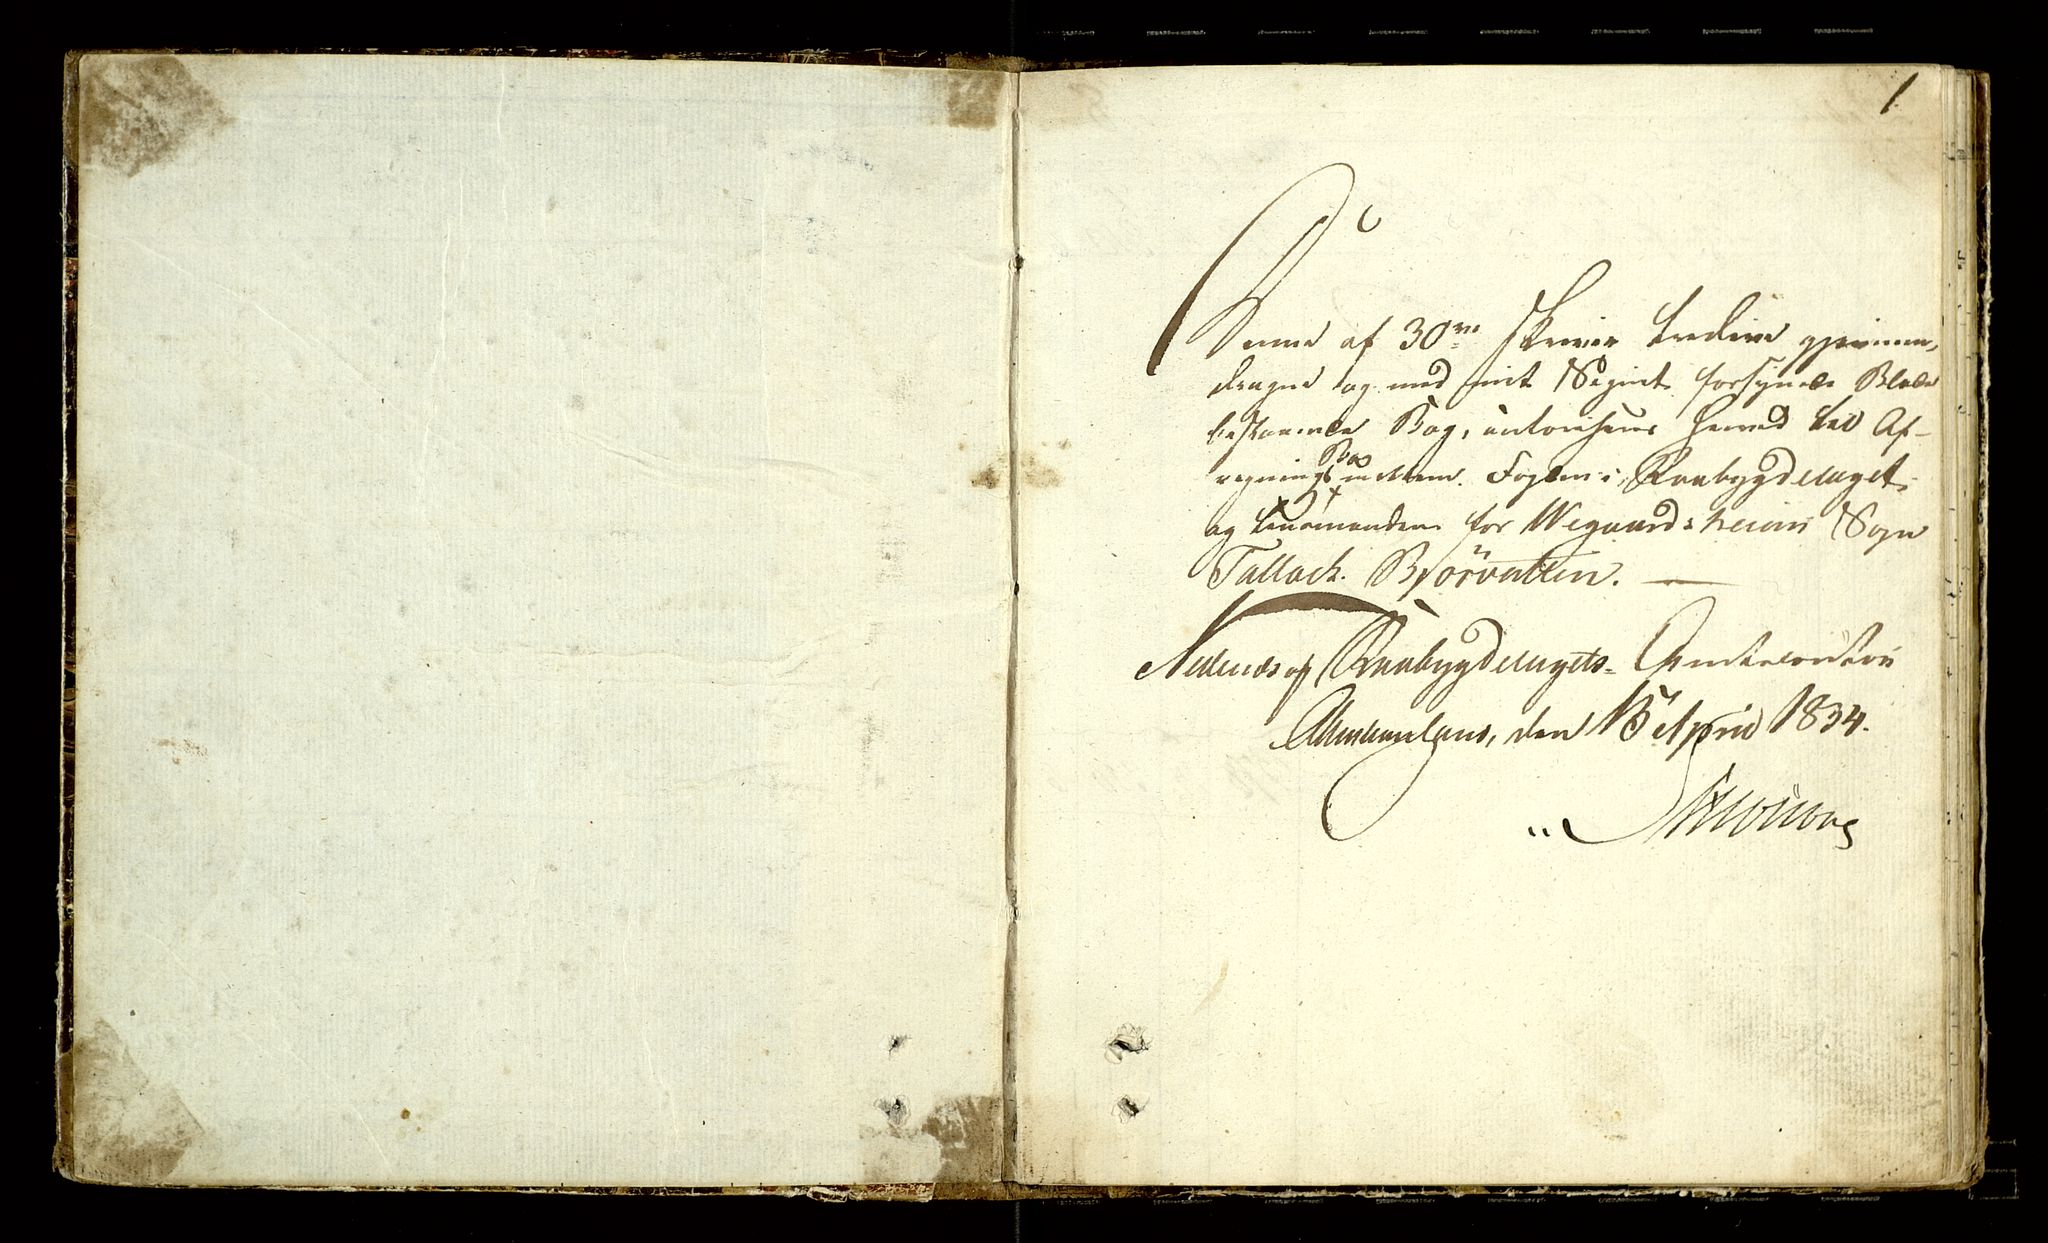 1
Denne af 30ve skriver tredive gjennem-
dragne og med mit Segnet forsynede Blade
bestaaende Bog, autoriseres herved til Af-
regnings Bog mellem Fogden i Raabygdelaget
og Lensmanden for Wegaardsheiens Sogn
Tallack Bjorvatten.
Nedenes og Raabygdelagets Amtscontoir
den 15 April 1834.